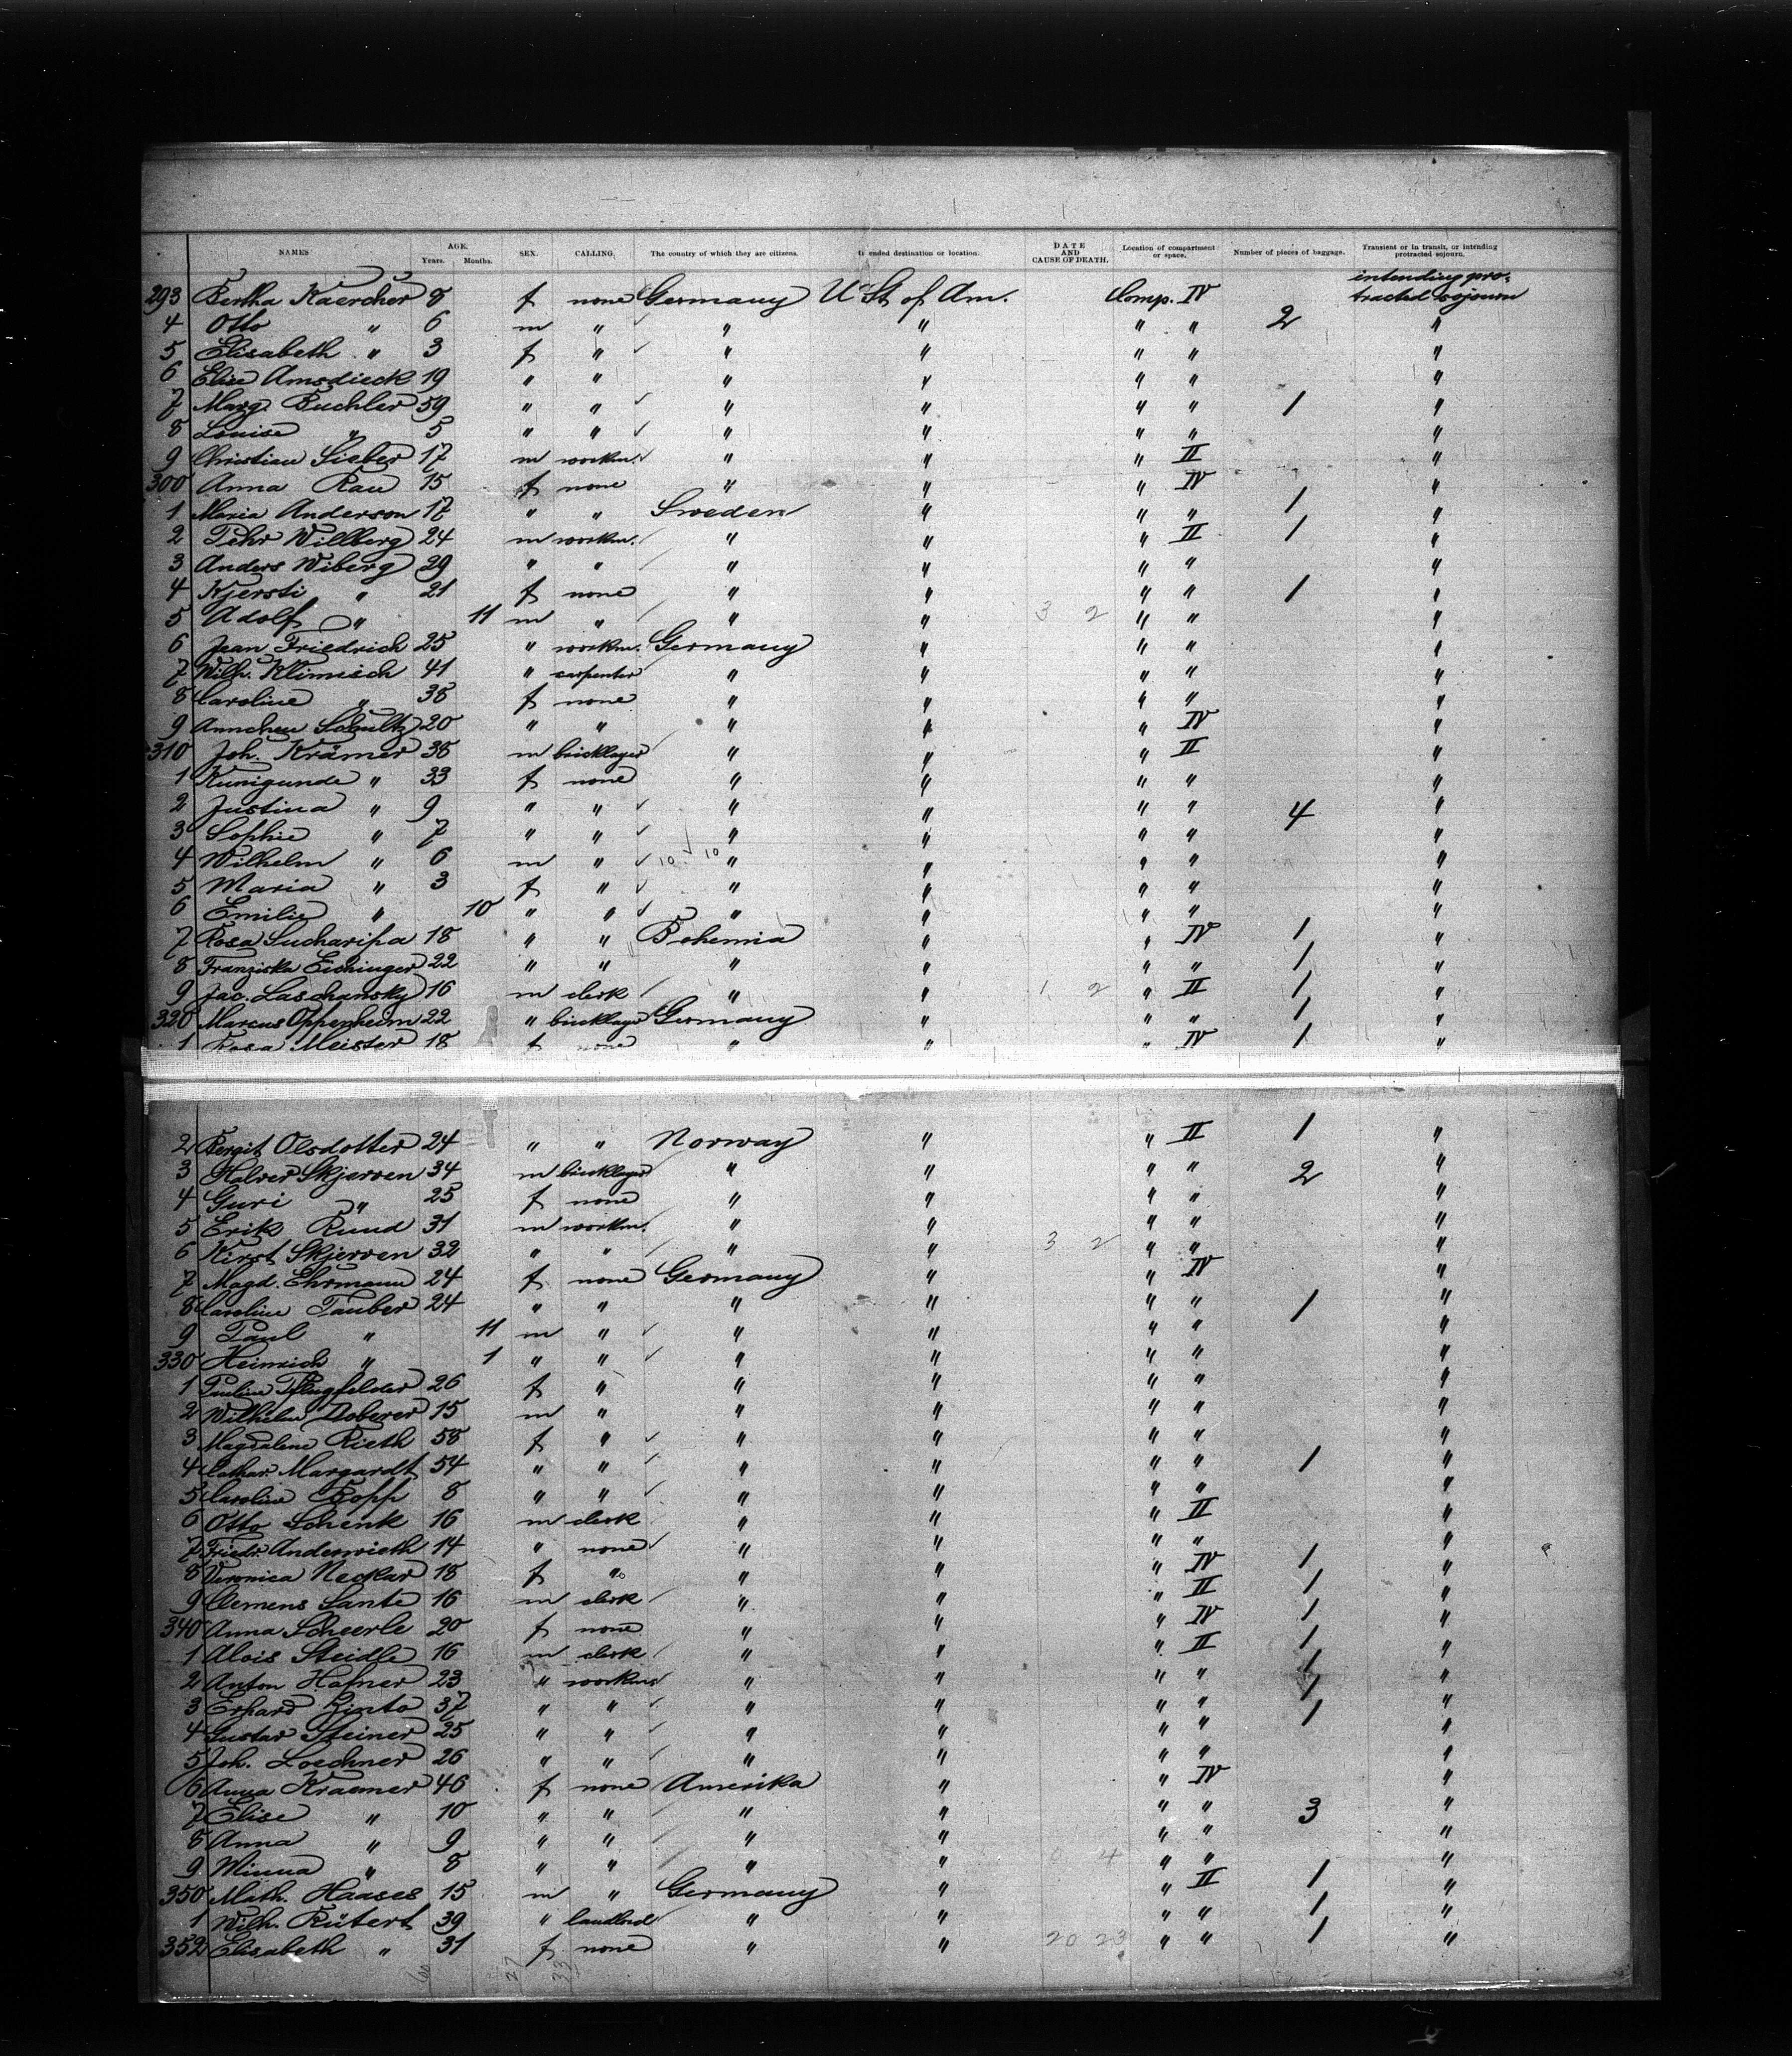 NAMES AGE. Years. Months. SEX. CALLING. The country of which they are citizens. Intended destination or location. DATE AND CAUSE OF DEATH. Location of compartment or space. Number of pieces of baggage. Transient or in transit, or intending protracted sojourn.
293 Bertha Kaercher 8 f none Germany U St of Am. Comp. IV intending protracted sojourn
4 Otto " 6 m " " " " " 2 "
5 Elisabeth " 3 f " " " " " "
6 Elise Amsdieck 19 " " " " " " "
7 Marg. Buchler 59 " " " " " " 1 "
8 Louise " 5 " " " " " " "
9 Christian Sieber 17 m workm. " " " II "
300 Anna Rau 15 f none " " " IV "
1 Maria Anderson 17 " " Sweden " " " 1 "
2 Pehr Willberg 24 m workm. " " " II 1 "
3 Anders Wiberg 29 " " " " " " "
4 Kjersti " 21 f none " " " " 1 "
5 Adolf " 11 m " " " 3 2 " " "
6 Jean Friedrich 25 " workm. Germany " " " "
7 Wilh. Klimisch 41 " carpenter " " " " "
8 Caroline " 38 f none " " " " "
9 Annchen Schultz 20 " " " " " IV "
310 Joh. Krämer 38 m bricklayer " " " II "
1 Kunigunde " 33 f none " " " " "
2 Justina " 9 " " " " " " 4 "
3 Sophie " 7 " " " " " " "
4 Wilhelm " 6 m " 10 10 " " " " "
5 Maria " 3 f " " " " " "
6 Emilie " 10 " " " " " " "
7 Rosa Sucharipa 18 " " Bohemia " " IV 1 "
8 Franziska Eichinger 22 " " " " " " 1 "
9 Jac. Laschansky 16 m clerk " " 1 2 " II 1 "
320 Marcus Oppenheim 22 " bricklayer Germany " " " 1 "
1 Rosa Meister 18 f none " " " IV 1 "
2 Bergit Olsdotter 24 " " Norway " " II 1 "
3 Halvor Skjerven 34 m bricklayer " " " " 2 "
4 Guri " 25 f none " " " " "
5 Erik Ruud 31 m workm. " " " " "
6 Kirst Skjerven 32 " " " " 3 2 " " "
7 Magd. Ehrmann 24 f none Germany " " IV "
8 Caroline Tauber 24 " " " " " " 1 "
9 Paul " 11 m " " " " " "
330 Heinrich " 1 " " " " " " "
1 Pauline Pflugfelder 26 f " " " " " "
2 Wilhelm Doberer 15 m " " " " " "
3 Magdalene Rieth 58 f " " " " " "
4 Cathar. Margardt 54 " " " " " " 1 "
5 Caroline Bopp 8 " " " " " " "
6 Otto Schenk 16 m clerk " " " II "
7 Friedr. Anderwieth 14 " none " " " " "
8 Veronica Neckar 18 f " " " " IV 1 "
9 Clemens Sante 16 m clerk " " " II 1 "
340 Anna Scheerle 20 f none " " " IV 1 "
1 Alois Steidle 16 m clerk " " " II 1 "
2 Anton Hafner 23 " workm. " " " " 1 "
3 Erhard 37 " " " " " " 1 "
4 Gustav Steiner 25 " " " " " " 1 "
5 Joh. Loechner 26 " " " " " " "
6 Anna Kraemer 46 f none Amerika " " IV "
7 Elise " 10 " " " " " " 3 "
8 Anna " 9 " " " " " " "
9 Minna " 8 " " " " 0 4 " " "
350 Math. Haases 15 m " Germany " " II 1 "
1 Wilh. Rütert 39 " landlord " " " " 1 "
352 Elisabeth " 31 f none " " 20 23 " " 1 "
60 27 33